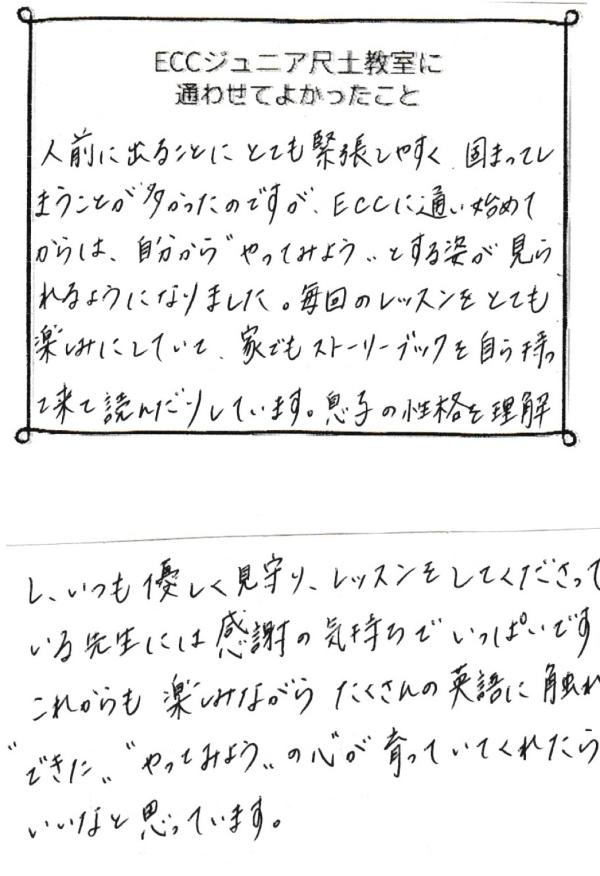 ECCジュニア尺土教室に
通わせてよかったこと
人前に出ることにとても緊張しやすく、固まってし
まうことが多かったのですが、ECCに通い始めて
からは、自分から"やってみよう"とする姿が見ら
れるようになりました。毎回のレッスンをとても
楽しみにしていて、家でもストーリーブックを自ら持っ
て来て読んだりしています。息子の性格を理解
し、いつも優しく見守り、レッスンをしてくださって
いる先生には感謝の気持ちでいっぱいです
これからも楽しみながらたくさんの英語に触れ
"できた""やってみよう"の心が育っていてくれたら
いいなと思っています。